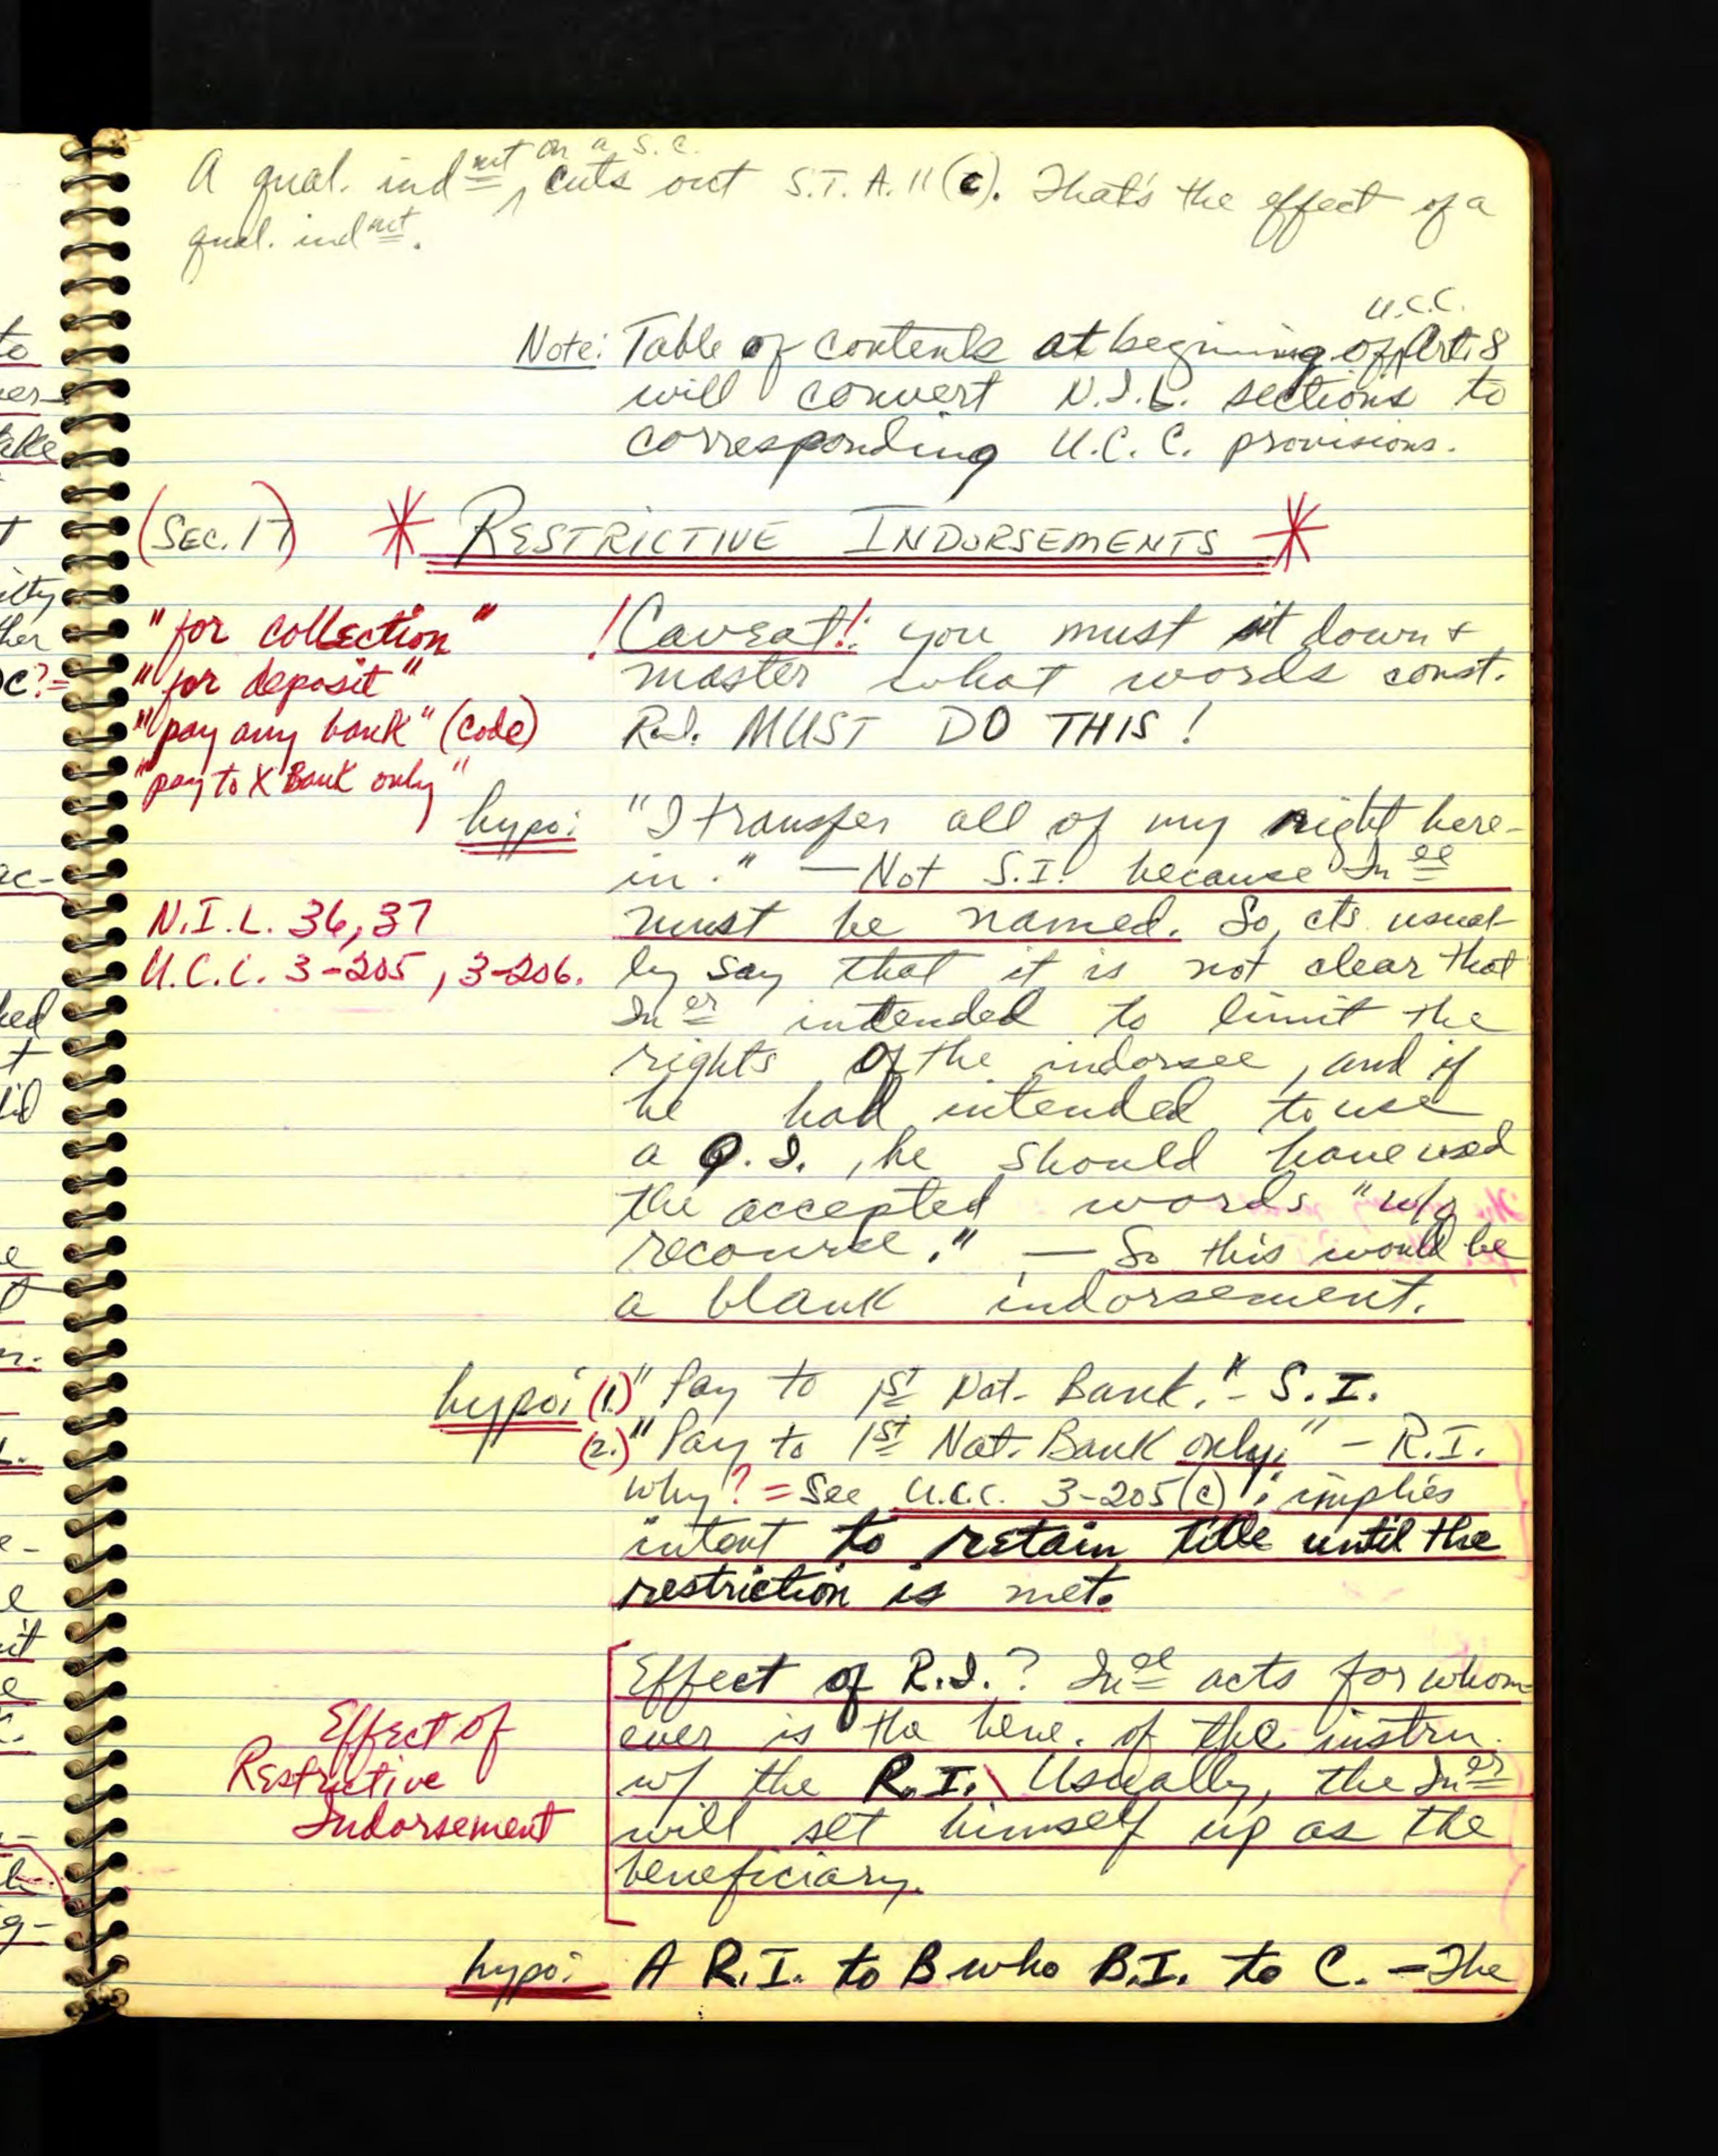 A qual. ind mt on a s.c. cuts out S.T. A. 11 (c). That's the effect of a
qual. ind mt.
Note: Table of contents at beginning of U.C.C. Art. 8
will convert N.I.L. sections to
corresponding U.C.C. provisions.
(SEC. 17) * RESTRICTIVE INDORSEMENTS *
"for collection"
"for deposit"
"pay any bank" (code)
"pay to X Bank only"
! Caveat!: you must sit down +
master what words const.
R.I. MUST DO THIS!
hypo: "I transfer all of my right here-
in." — Not S.I. because In ee
must be named. So, cts usual-
ly say that it is not clear that
In er intended to limit the
rights of the indorsee, and if
he had intended to use
a Q.I., he should have used
the accepted words "w/o
recourse." — So this would be
a blank indorsement.
N.I.L. 36, 37
U.C.C. 3-205, 3-206.
hypo: (1.) "Pay to 1st Nat. Bank." - S.I.
(2.) "Pay to 1st Nat. Bank only." - R.I.
Why? = See U.C.C. 3-205(c); implies
intent to retain title until the
restriction is met.
Effect of
Restrictive
Indorsement
Effect of R.I.? In ee acts for whom-
ever is the bene. of the instru.
w/ the R.I. \ Usually, the In er
will set himself up as the
beneficiary.
hypo: A R.I. to B who B.I. to C. - The